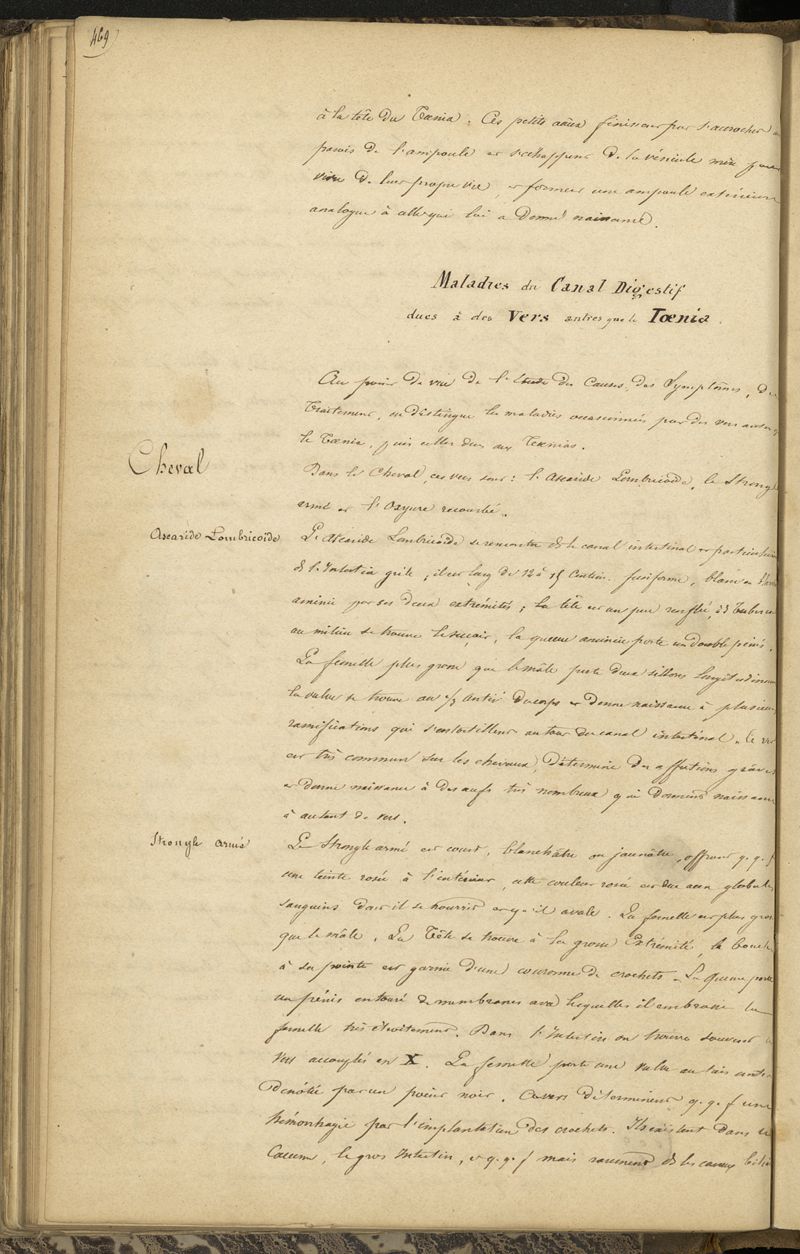 469
à la tête du Tœnia. Ces petits finissent par s'accrocher
parois de l'ampoule et s'échapper de la vésicule mère pour
vivre de leur propre vie, et former une ampoule extérieure
analogue à celle qui lui a donné naissance.
Maladies du Canal Digestif
dues à des Vers autres que le Tœnia.
Au point de vue de l'étude des Causes, des Symptômes, du
Traitement, on distingue les maladies occasionnées par des vers autres
le Tœnia, puis celles dues aux Tœnias.
Cheval
Dans le Cheval, ces vers sont : l'Ascaride Lombricoïde, le Strongle
armé et l'Oxyure recourbé.
Ascaride Lombricoïde
L'Ascaride Lombricoïde se rencontre ds le canal intestinal et
ds l'Intestin grêle ; il est long de 12 à 15 Centim. fusiforme, blanc
amincie par ses deux extrémités ; la tête est un peu renflée,
au milieu se trouve le suçoir, la queue amincie porte un double pénis.
La femelle plus grosse que le mâle porte deux sillons longitudinaux
la vulve se trouve au 1/3 antér du corps et donne naissance à plusieurs
ramifications qui s'entortillent autour du canal intestinal. Ce ver
est très commun sur les chevaux, détermine des affections graves
et donne naissance à des œufs très nombreux qui donnent naissance
à autant de vers.
Strongle armé
Le Strongle armé est court, blanchâtre ou jaunâtre, offrant q.q.f
une teinte rosée à l'extérieur, cette couleur rosée est due aux globules
sanguins dont il se nourrit et qu'il avale. La femelle est plus grosse
que le mâle. La Tête se trouve à la grosse Extrémité, la bouche
à sa pointe est garnie d'une couronne de crochets. La Queue porte
un pénis entouré de membranes avec lesquelles il embrasse la
femelle très étroitement. Dans l'Intestin on trouve souvent
vers accouplés en X. La femelle porte une vulve au tiers antér
dénotée par un point noir. Ces vers déterminent q.q.f une
hémorrhagie par l'implantation des crochets. Ils existent dans le
Cœcum, le gros Intestin, et q.q.f mais rarement ds les canaux